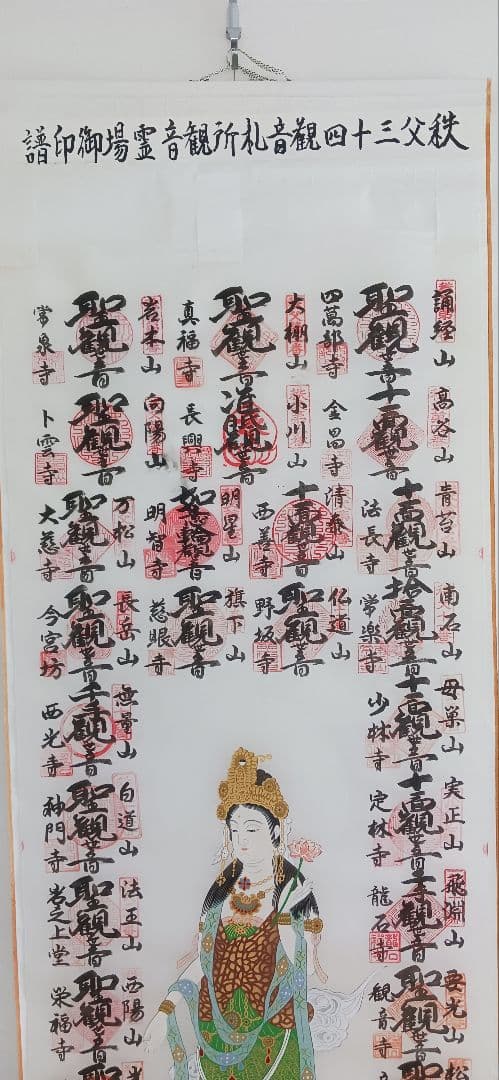 秩父三十四観音札所観音霊場御印譜
誦経山
聖観音
四萬部寺
大棚山
聖観音
真福寺
岩本山
聖観音
常泉寺
高谷山
十一面観音
金昌寺
小川山
准胝観音
長興寺
向陽山
聖観音
卜雲寺
青苔山
十一面観音
法長寺
清泰山
十一面観音
西善寺
明星山
如意輪観音
明智寺
万松山
聖観音
大慈寺
南石山
十一面観音
常楽寺
仏道山
聖観音
野坂寺
旗下山
聖観音
慈眼寺
長岳山
聖観音
今宮坊
母巣山
十一面観音
少林寺
無量山
千手観音
西光寺
実正山
十一面観音
定林寺
白道山
聖観音
神門寺
飛渕山
千手観音
龍石寺
法王山
聖観音
岩之上堂
要光山
聖観音
観音寺
西陽山
聖観音
栄福寺
松